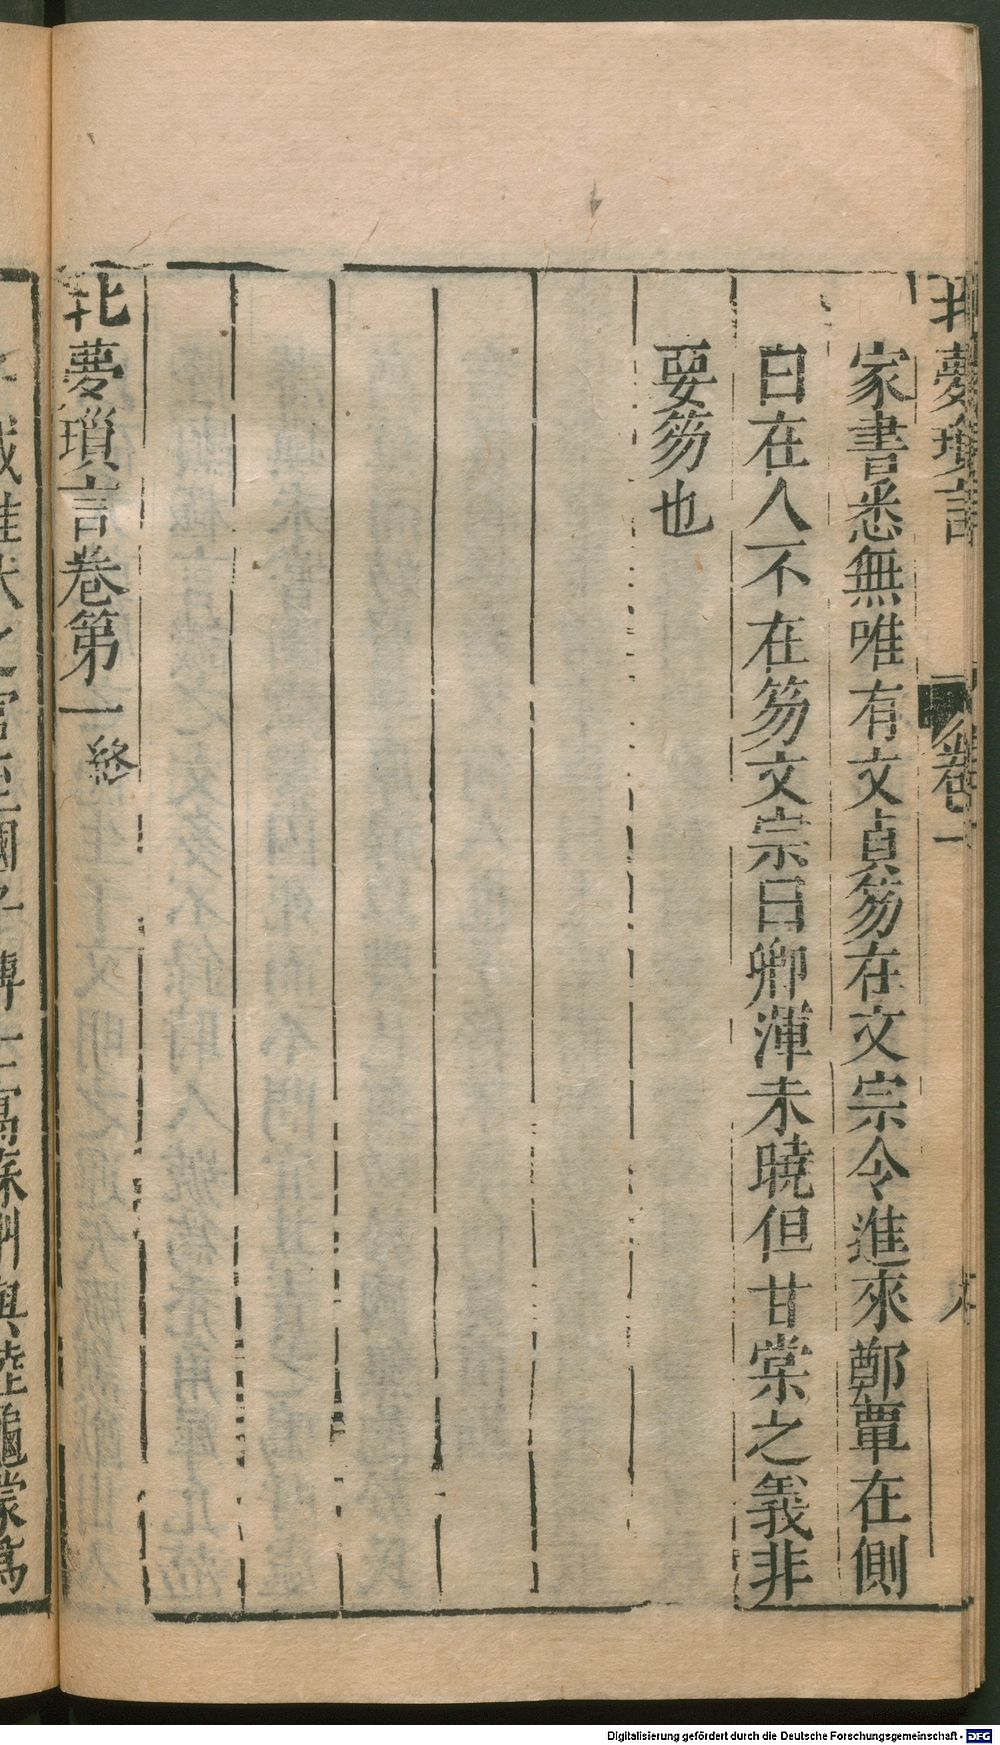 北夢瑣言
卷一
家書悉無唯有文貞笏在文宗令進來鄭覃在側
曰在人不在笏文宗曰卿渾未曉但甘棠之義非
要笏也
北夢瑣言卷第一終
Digitalisierung gefördert durch die Deutsche Forschungsgemeinschaft - DFG